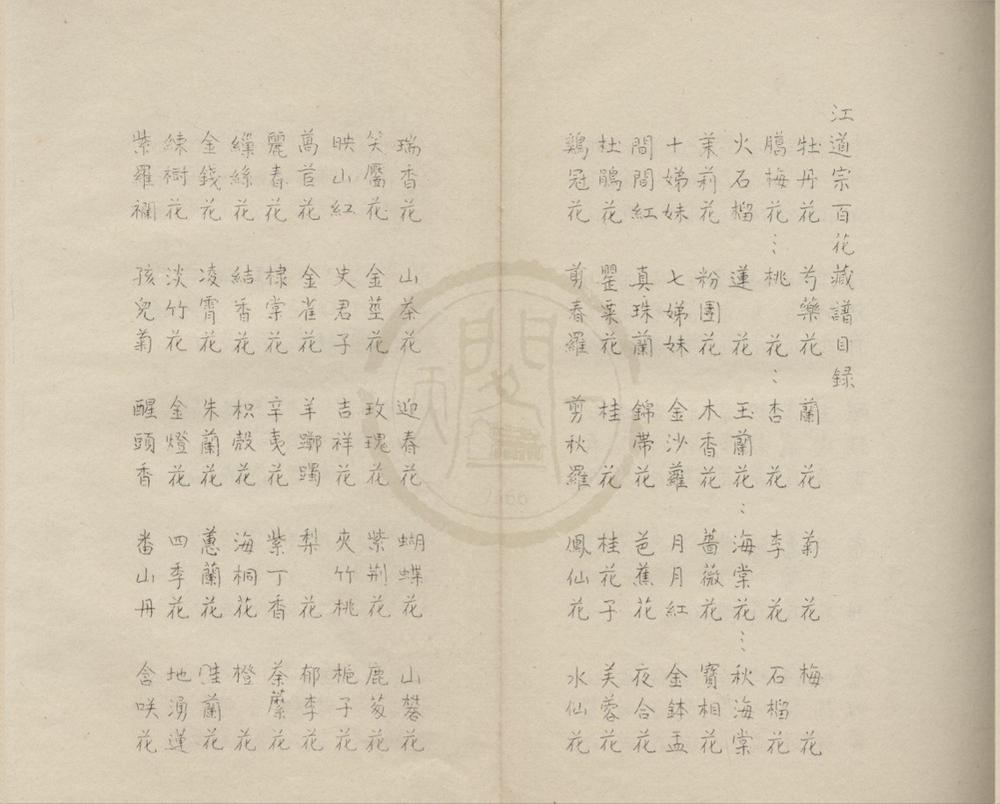 江道宗百花藏譜目録
牡丹花 芍藥花 蘭花 菊花 梅花
臈梅花 桃花 杏花 李花 石榴花
火石榴 蓮花 玉蘭花 海棠花 秋海棠
茉莉花 粉團花 木香花 薔薇花 寶相花
十娣妹 七娣妹 金沙蘿 月月紅 金鉢盂
間間紅 真珠蘭 錦帶花 芭蕉花 夜合花
杜鵑花 罌粟花 桂花 桂花子 芙蓉花
鷄冠花 剪春羅 剪秋羅 鳳仙花 水仙花
瑞香花 山茶花 迎春花 蝴蝶花 山礬花
笑靨花 金莖花 玫瑰花 紫荆花 鹿葱花
映山紅 史君子 吉祥花 夾竹桃 梔子花
萬苣花 金雀花 羊躑躅 梨花 郁李花
麗春花 棣棠花 辛夷花 紫丁香 荼蘼花
繅絲花 結香花 枳殼花 海桐花 橙花
金錢花 凌霄花 朱蘭花 蕙蘭花 蘭花
楝樹花 淡竹花 金燈花 四季花 地湧蓮
紫羅襴 孩兒菊 醒頭香 番山丹 含咲花